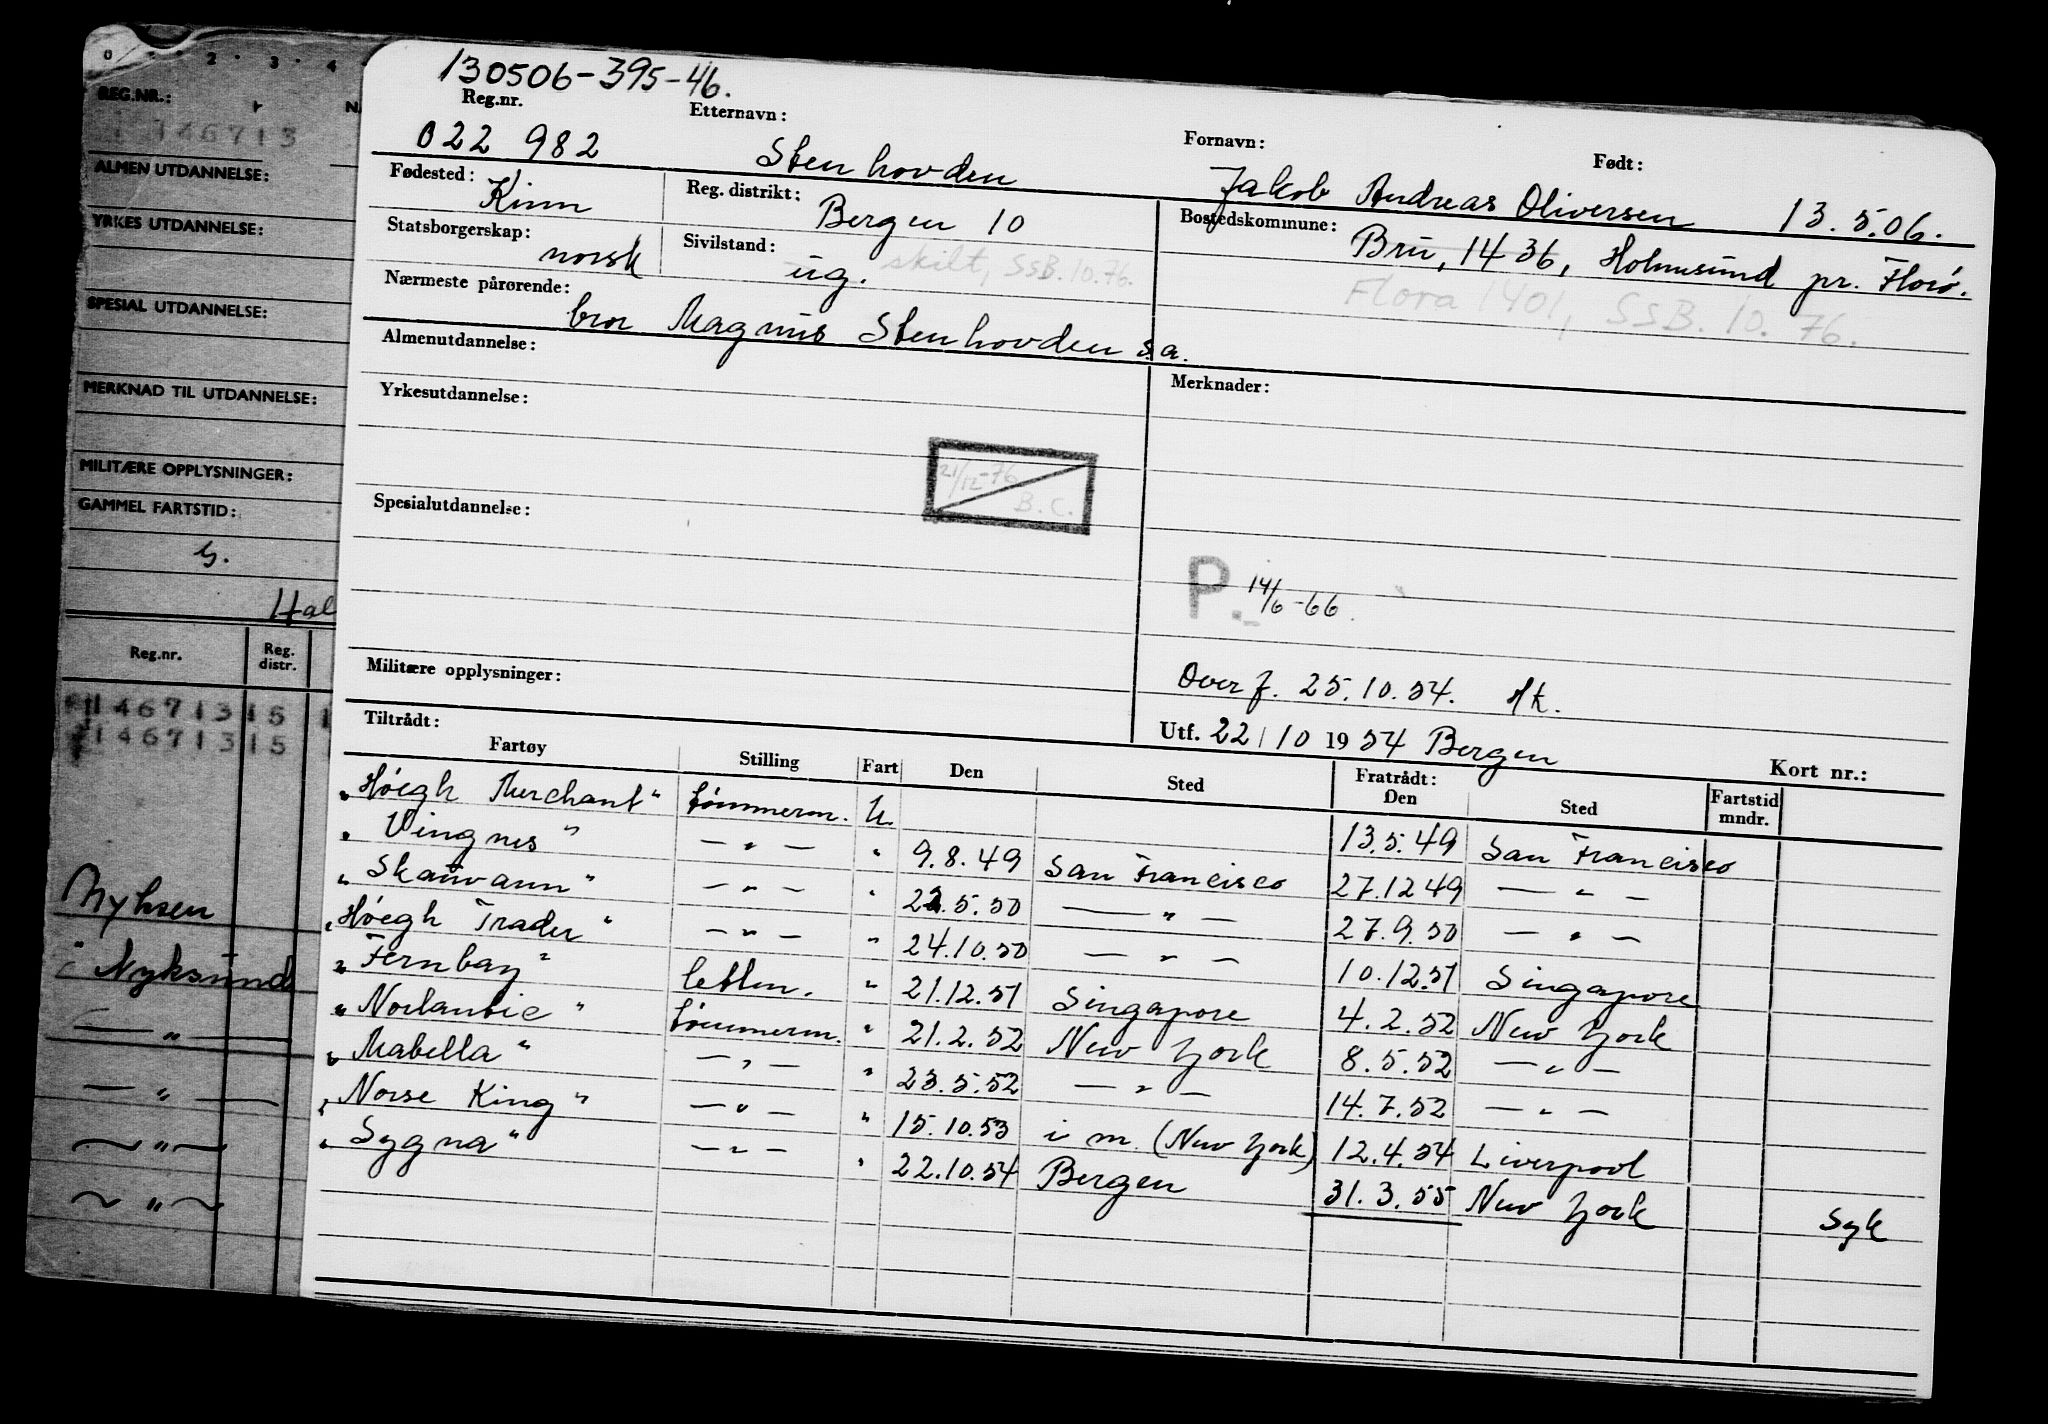 0 · · 2 · 3 · 4
REG.NR.:
146713
ALMEN UTDANNELSE:
YRKES UTDANNELSE:
SPESIAL UTDANNELSE:
MERKNAD TIL UTDANNELSE:
MILITÆRE OPPLYSNINGER:
GAMMEL FARTSTID:
Hal
Reg.nr. Reg. distr.
146713 15 1
146713 15
Nyksund
— " —
— " —
— " —
— " —
130506-395-46.
Reg.nr. Etternavn: Fornavn: Født:
022 982 Stenhovden Jakob Andreas Oliversen 13.5.06.
Fødested: Kinn Reg. distrikt: Bergen 10 Bostedskommune: Bru, 1436, Holmesund pr. Florø.
Statsborgerskap: norsk Sivilstand: ug. skilt, SSB.10.76. Flora 1401, SSB. 10. 76.
Nærmeste pårørende: bror Magnus Stenhovden s.a.
Almenutdannelse: Merknader:
Yrkesutdannelse:
21/12-76 B.C.
Spesialutdannelse:
P. 14/6-66.
Militære opplysninger: Overf. 25.10.54.
Tiltrådt: Utf. 22/10 1954 Bergen Kort nr.:
Fartøy Stilling Fart Den Sted Fratrådt: Den Sted Fartstid mndr.
"Høegh Merchant" tømmerm. u. 13.5.49 San Francisco
"Vingnes" — " — " 9.8.49 San Francisco 27.12 49 — " —
"Skauvann" — " — " 22.5.50 — " — 27.9.50 — " —
"Høegh Trader" — " — " 24.10.50 — " — 10.12.51 Singapore
"Fernbay" lettm. " 21.12.51 Singapore 4.2.52 New York
"Norlantic" tømmerm. " 21.2.52 New York 8.5.52 — " —
"Mabella" — " — " 23.5.52 — " — 14.7.52 — " —
"Norse King" — " — " 15.10.53 i m. (New York) 12.4.54 Liverpool
"Sygna" — " — " 22.10.54 Bergen 31.3.55 New York Syk